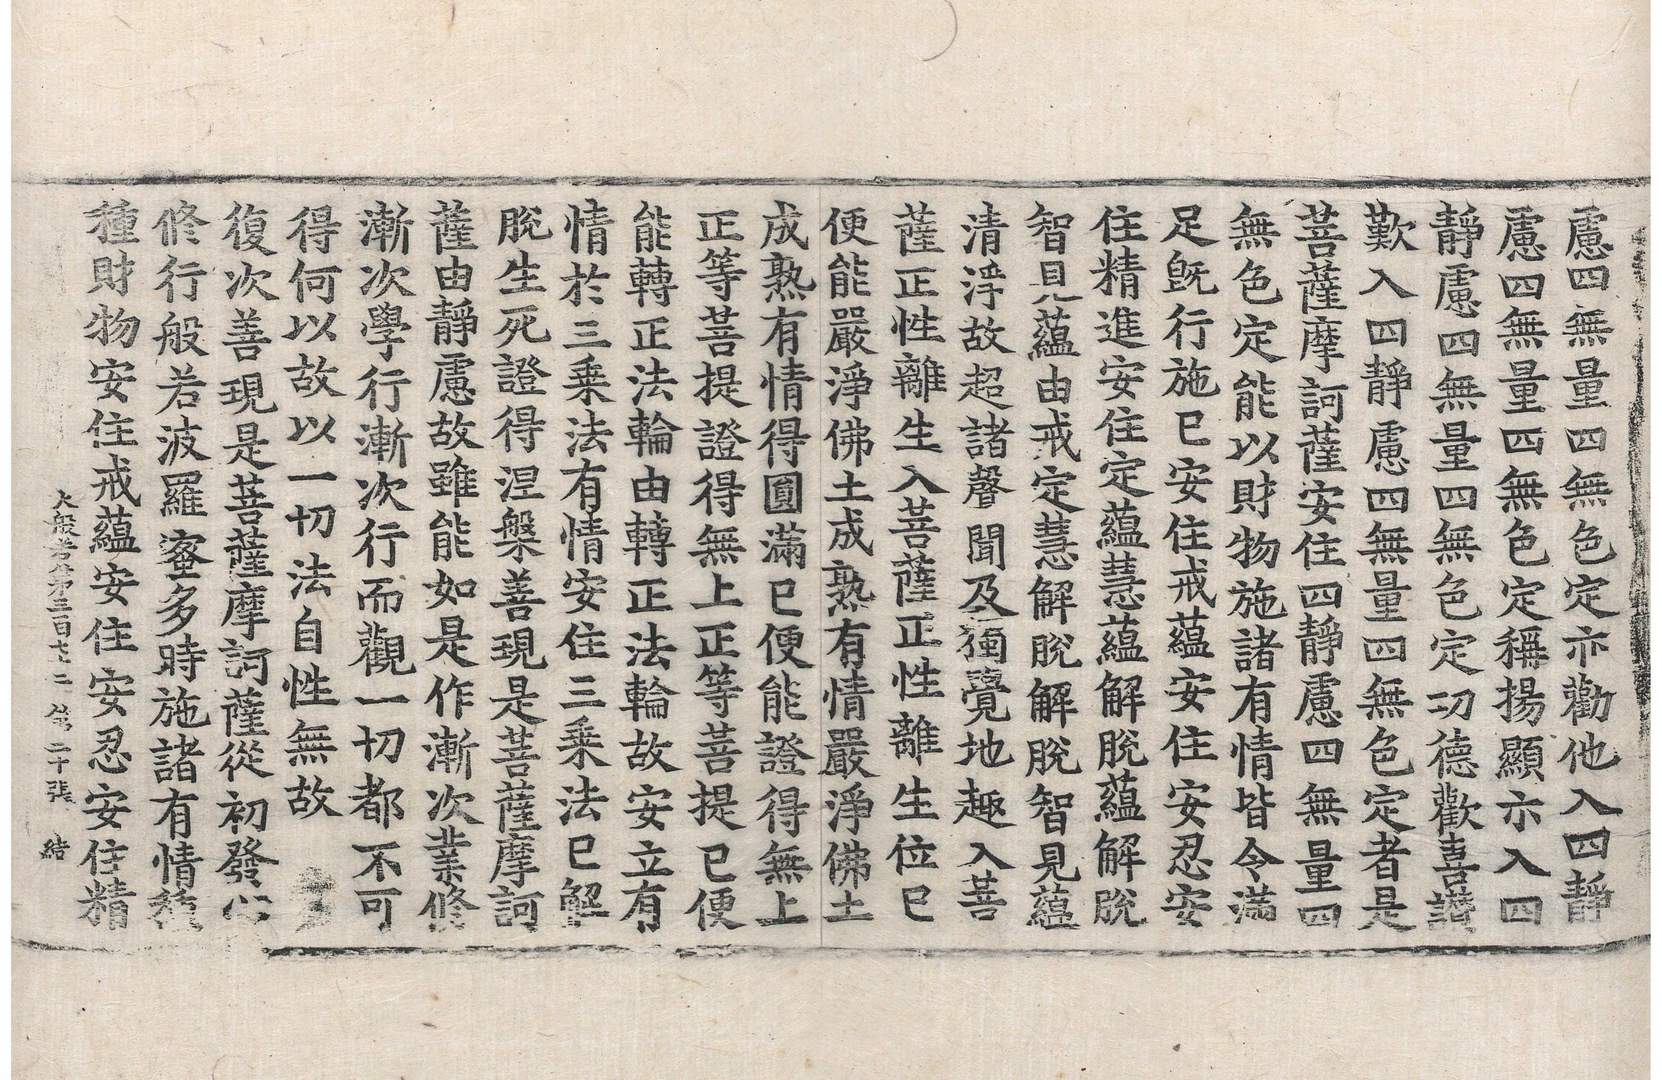 慮四無量四無色定亦勸他入四靜
慮四無量四無色定稱揚顯示入四
靜慮四無量四無色定功德歡喜讚
歎入四靜慮四無量四無色定者是
菩薩摩訶薩安住四靜慮四無量四
無色定能以財物施諸有情皆令滿
足旣行施已安住戒蘊安住安忍安
住精進安住定蘊慧蘊解脫蘊解脫
智見蘊由戒定慧解脫解脫智見蘊
清淨故超諸聲聞及獨覺地趣入菩
薩正性離生入菩薩正性離生位已
便能嚴淨佛土成熟有情嚴淨佛土
成熟有情得圓滿已便能證得無上
正等菩提證得無上正等菩提已便
能轉正法輪由轉正法輪故安立有
情於三乘法有情安住三乘法已解
脫生死證得涅槃善現是菩薩摩訶
薩由靜慮故雖能如是作漸次業修
漸次學行漸次行而觀一切都不可
得何以故以一切法自性無故
復次善現是菩薩摩訶薩從初發心
修行般若波羅蜜多時施諸有情種
種財物安住戒蘊安住安忍安住精
大般若第三百七十二 第二十張 結